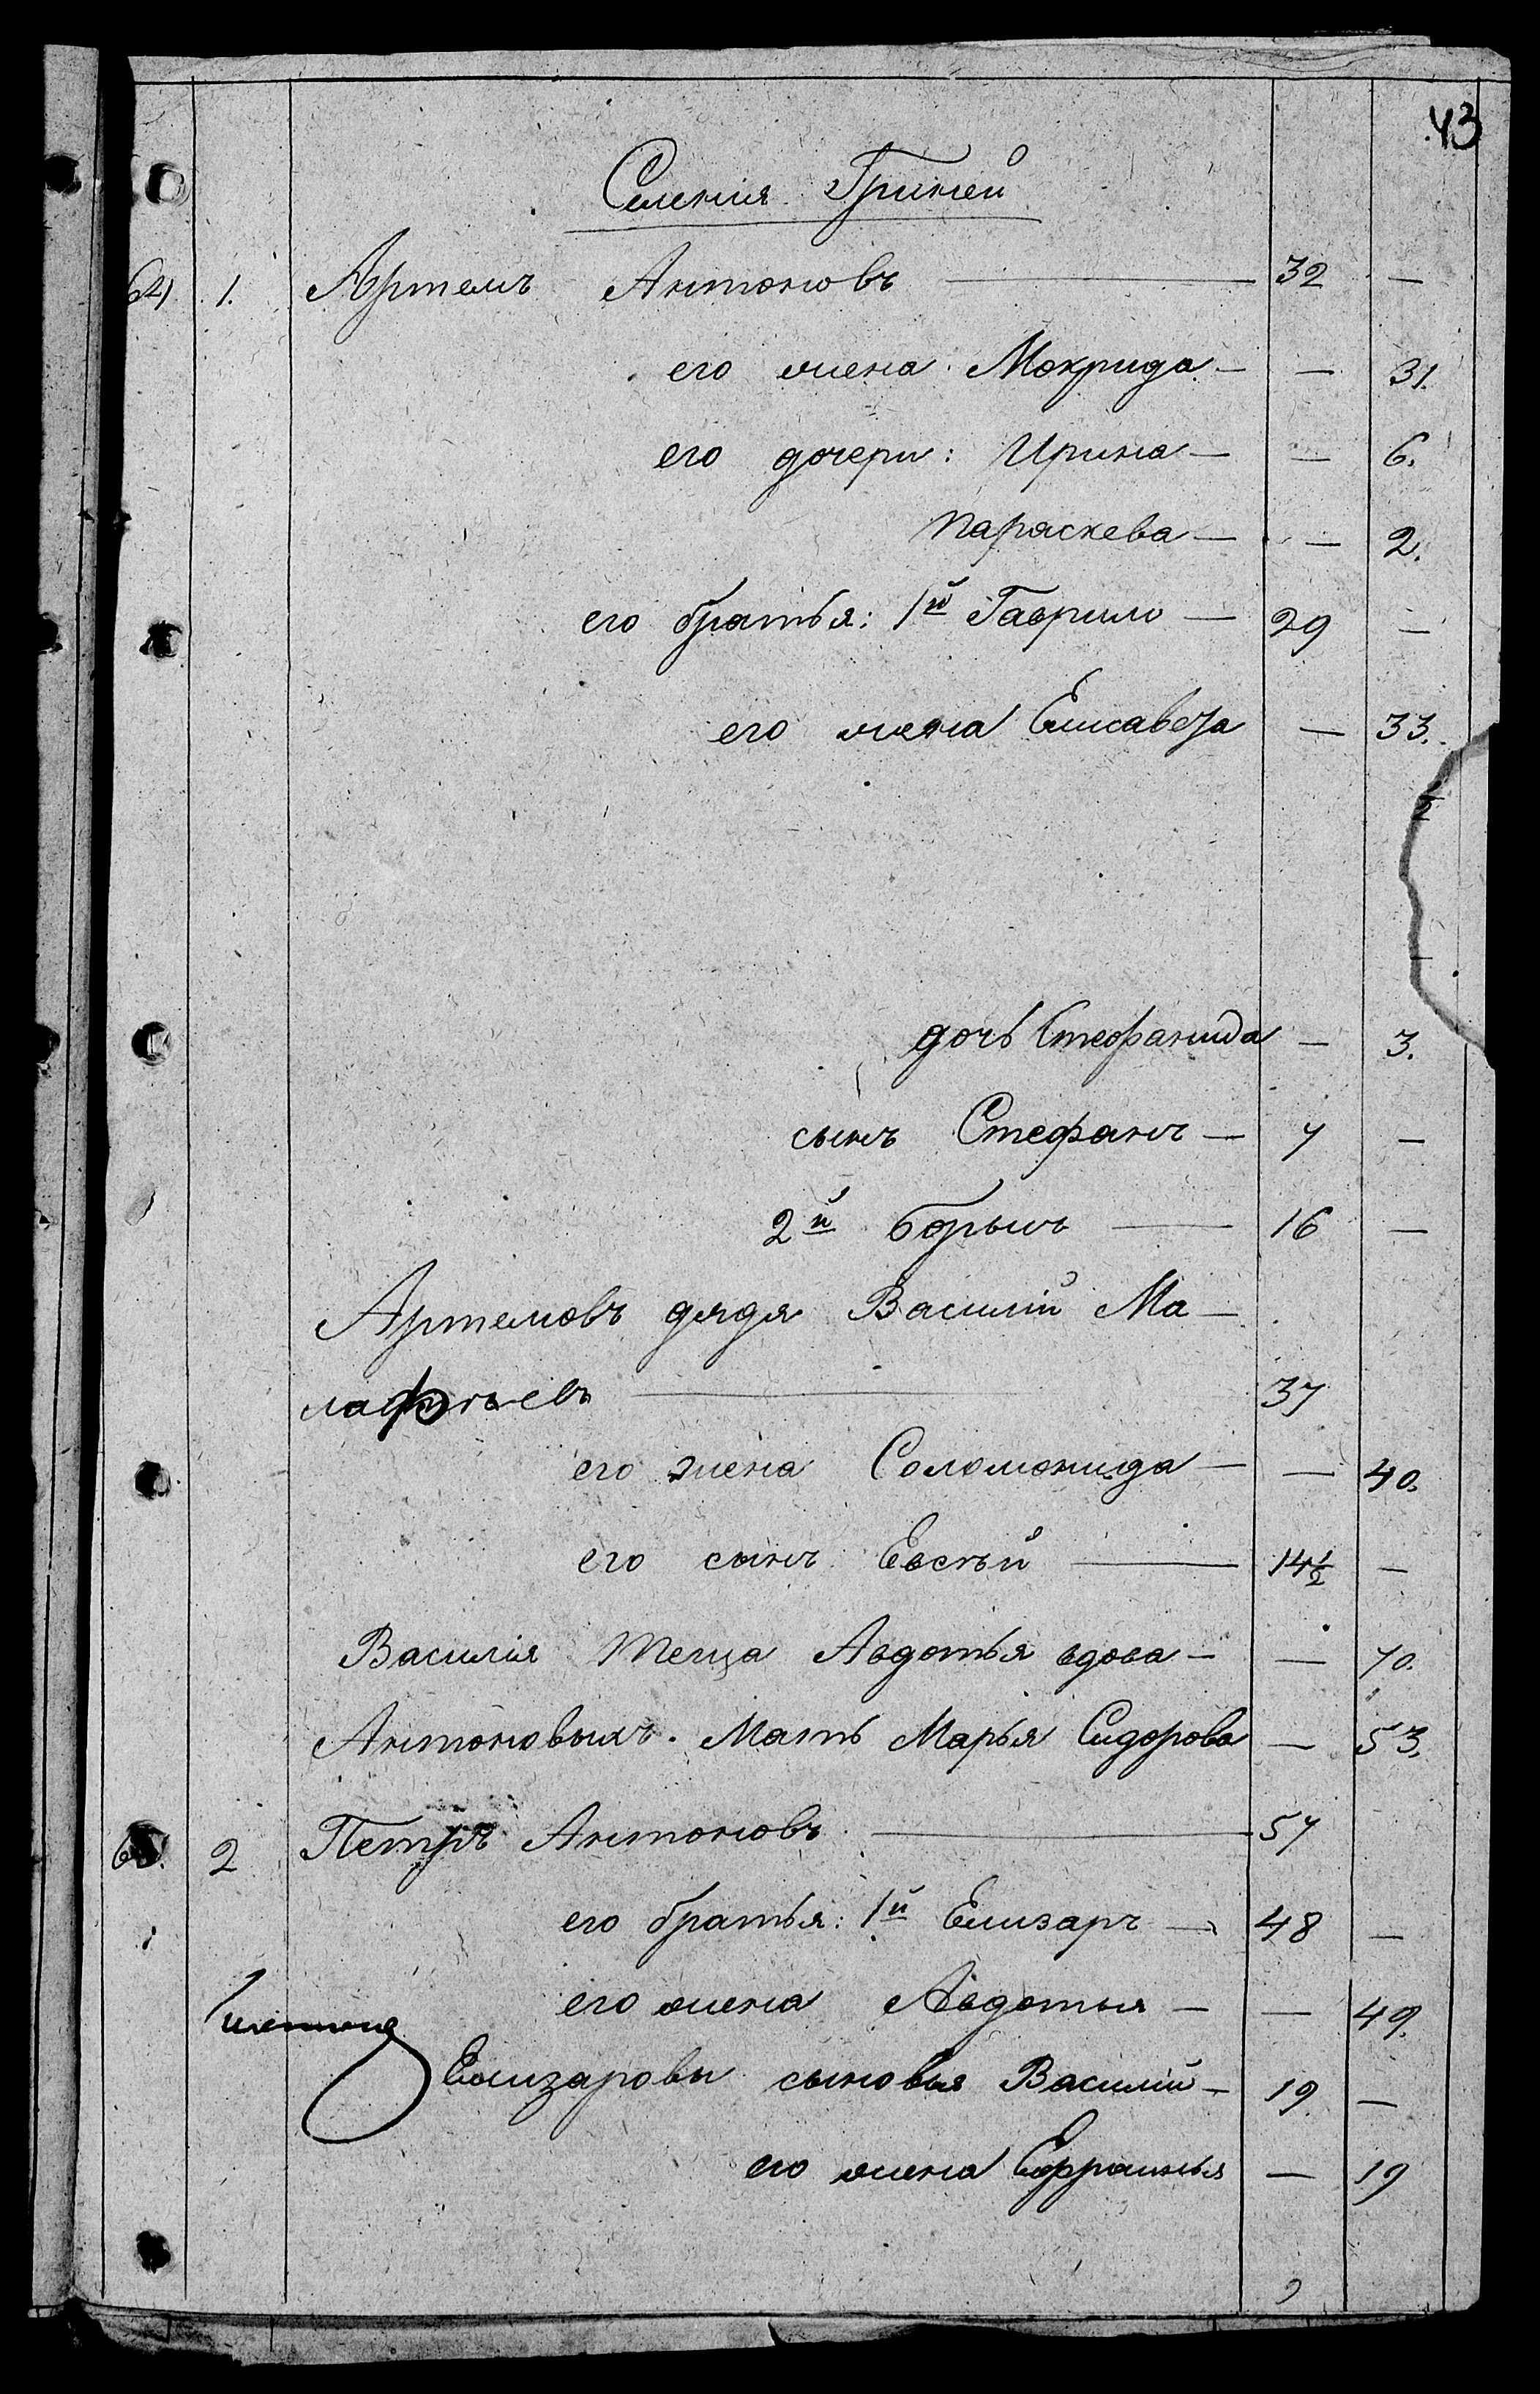 43
Селенія Гриней
64 1. Артемъ Антоновъ — 32 —
его жена Мокрида — — 31.
его дочери: Ирина — — 6.
Параскева — — 2.
его братья: 1й Гаврило — 29 —
его жена Елисавета — 33.
1/2
дочь Стефанида — 3.
сынъ Стефанъ — 7 —
2й Борысъ — 16 —
Артемовъ дядя Василій Ма-
лафѣевъ — 37
его жена Соломонида — — 40.
его сынъ Евсѣй — 14 1/2 —
Василія теща Авдотья вдова — — 70.
Антоновыхъ. Мать Марья Сидорова — 53.
65. 2 Петръ Антоновъ — 57
его братья: 1й Елизаръ — 48 —
его жена Авдотья — — 49.
Елизаровы сыновья Василій — 19. —
его жена Ефросинья — 19